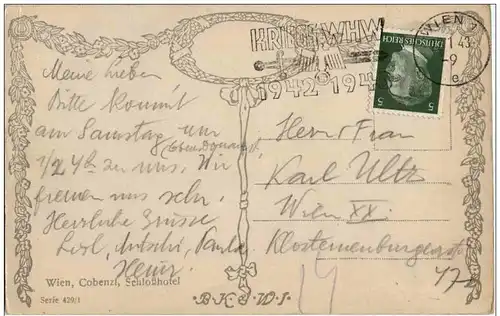 KRIEGS-WHW
1942 194
WIEN 7
1 43
-9
e
DEUTSCHES REICH
5 5
Meine Lieben
Bitte kommt
am Samstag um
1/2 4h zu uns. Wir
freuen uns sehr.
Herzliche Grüsse
Heinz.
Herr u Frau
Karl
Wien XX.
Klosterneuburgerstr
Wien, Cobenzl, Schloßhotel
Serie 429/1
·B·K·W·I·